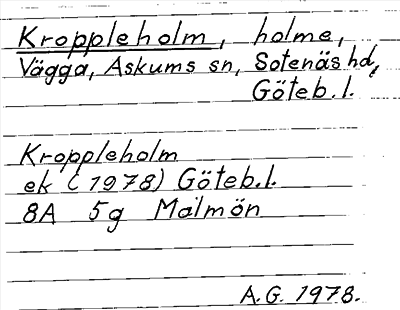 Kroppleholm, holme,
Vägga, Askums sn, Sotenäs hd,
Göteb. l.
Kroppleholm
ek (1978) Göteb.l.
8A 5g Malmön
A.G. 1978.